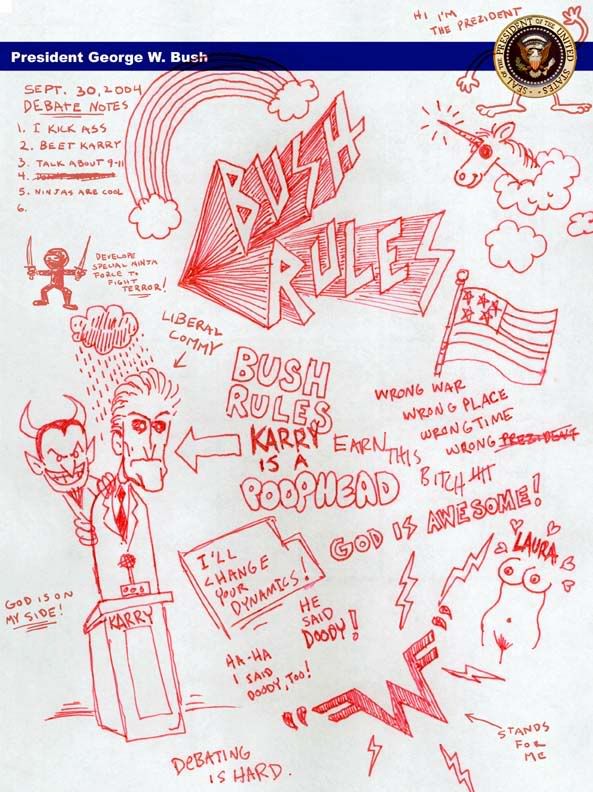 HI I'M
THE PREZIDENT
President George W. Bush
SEAL OF THE PRESIDENT OF THE UNITED STATES
SEPT. 30, 2004
DEBATE NOTES
1. I KICK ASS
2. BEET KARRY
3. TALK ABOUT 9-11
4.
5. NINJAS ARE COOL
6.
BUSH
RULES
DEVELOPE
SPECIAL NINJA
FORCE TO
FIGHT
TERROR!
LIBERAL
COMMY
BUSH
RULES
KARRY
IS A
POOPHEAD
WRONG WAR
WRONG PLACE
WRONG TIME
WRONG PREZIDENT
EARN THIS
BITCH
GOD IS AWESOME!
I'LL
CHANGE
YOUR
DYNAMICS!
LAURA
GOD IS ON
MY SIDE!
KARRY
HE
SAID
DOODY!
HA-HA
I SAID
DOODY, TOO!
"W"
STANDS
FOR
ME
DEBATING
IS HARD.